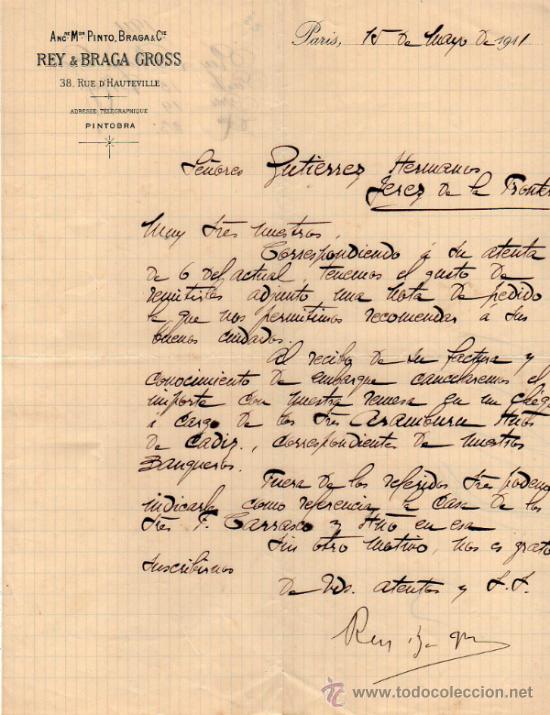 Ancne Mon Pinto, Braga & Cie
REY & BRAGA GROSS
38, Rue d'Hauteville
Adresse Télégraphique
PINTOBRA
Paris, 15 de Mayo de 1911
Señores Gutierrez Hermanos
Jerez de la Fronter
Muy Sres nuestros,
Correspondiendo á su atenta
de 6 del actual, tenemos el gusto de
remitirles adjunto una nota de pedido
que nos permitimos recomendar á sus
buenos cuidados.
Al recibo de su factura y
conocimiento de embarque cancelaremos el
importe con nuestra remesa en un cheq
á cargo de los Sres Aramburu Hnos
de Cadiz, correspondientes de nuestros
Banqueros.
Fuera de los referidos Sres podemo
indicarles como referencia, la casa de los
Sres F. Carrasco y Hno en esa
Sin otro motivo, nos es grato
suscribirnos
de Vds. atentos y S.S.
Rey Braga
www.todocoleccion.net